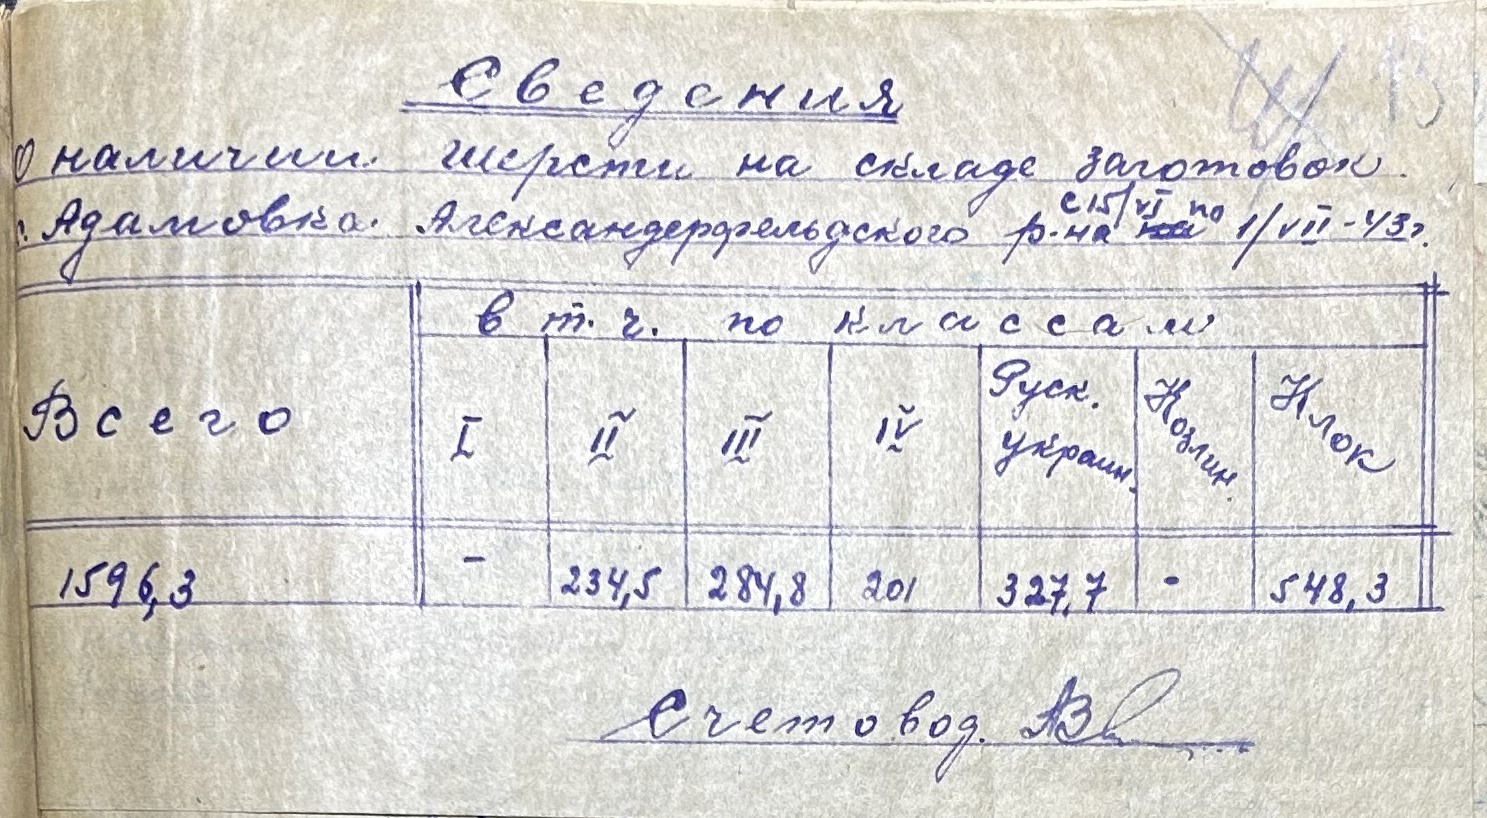 Сведения
О наличии шерсти на складе заготовок
с. Адамовка Александерфельдского р-на с 15/VI по 1/VII-43 г.
Всего
в т. ч. по классам
I II III IV Руск. украин. Козлин. Клок
1596,3 - 234,5 284,8 201 327,7 - 548,3
Счетовод.